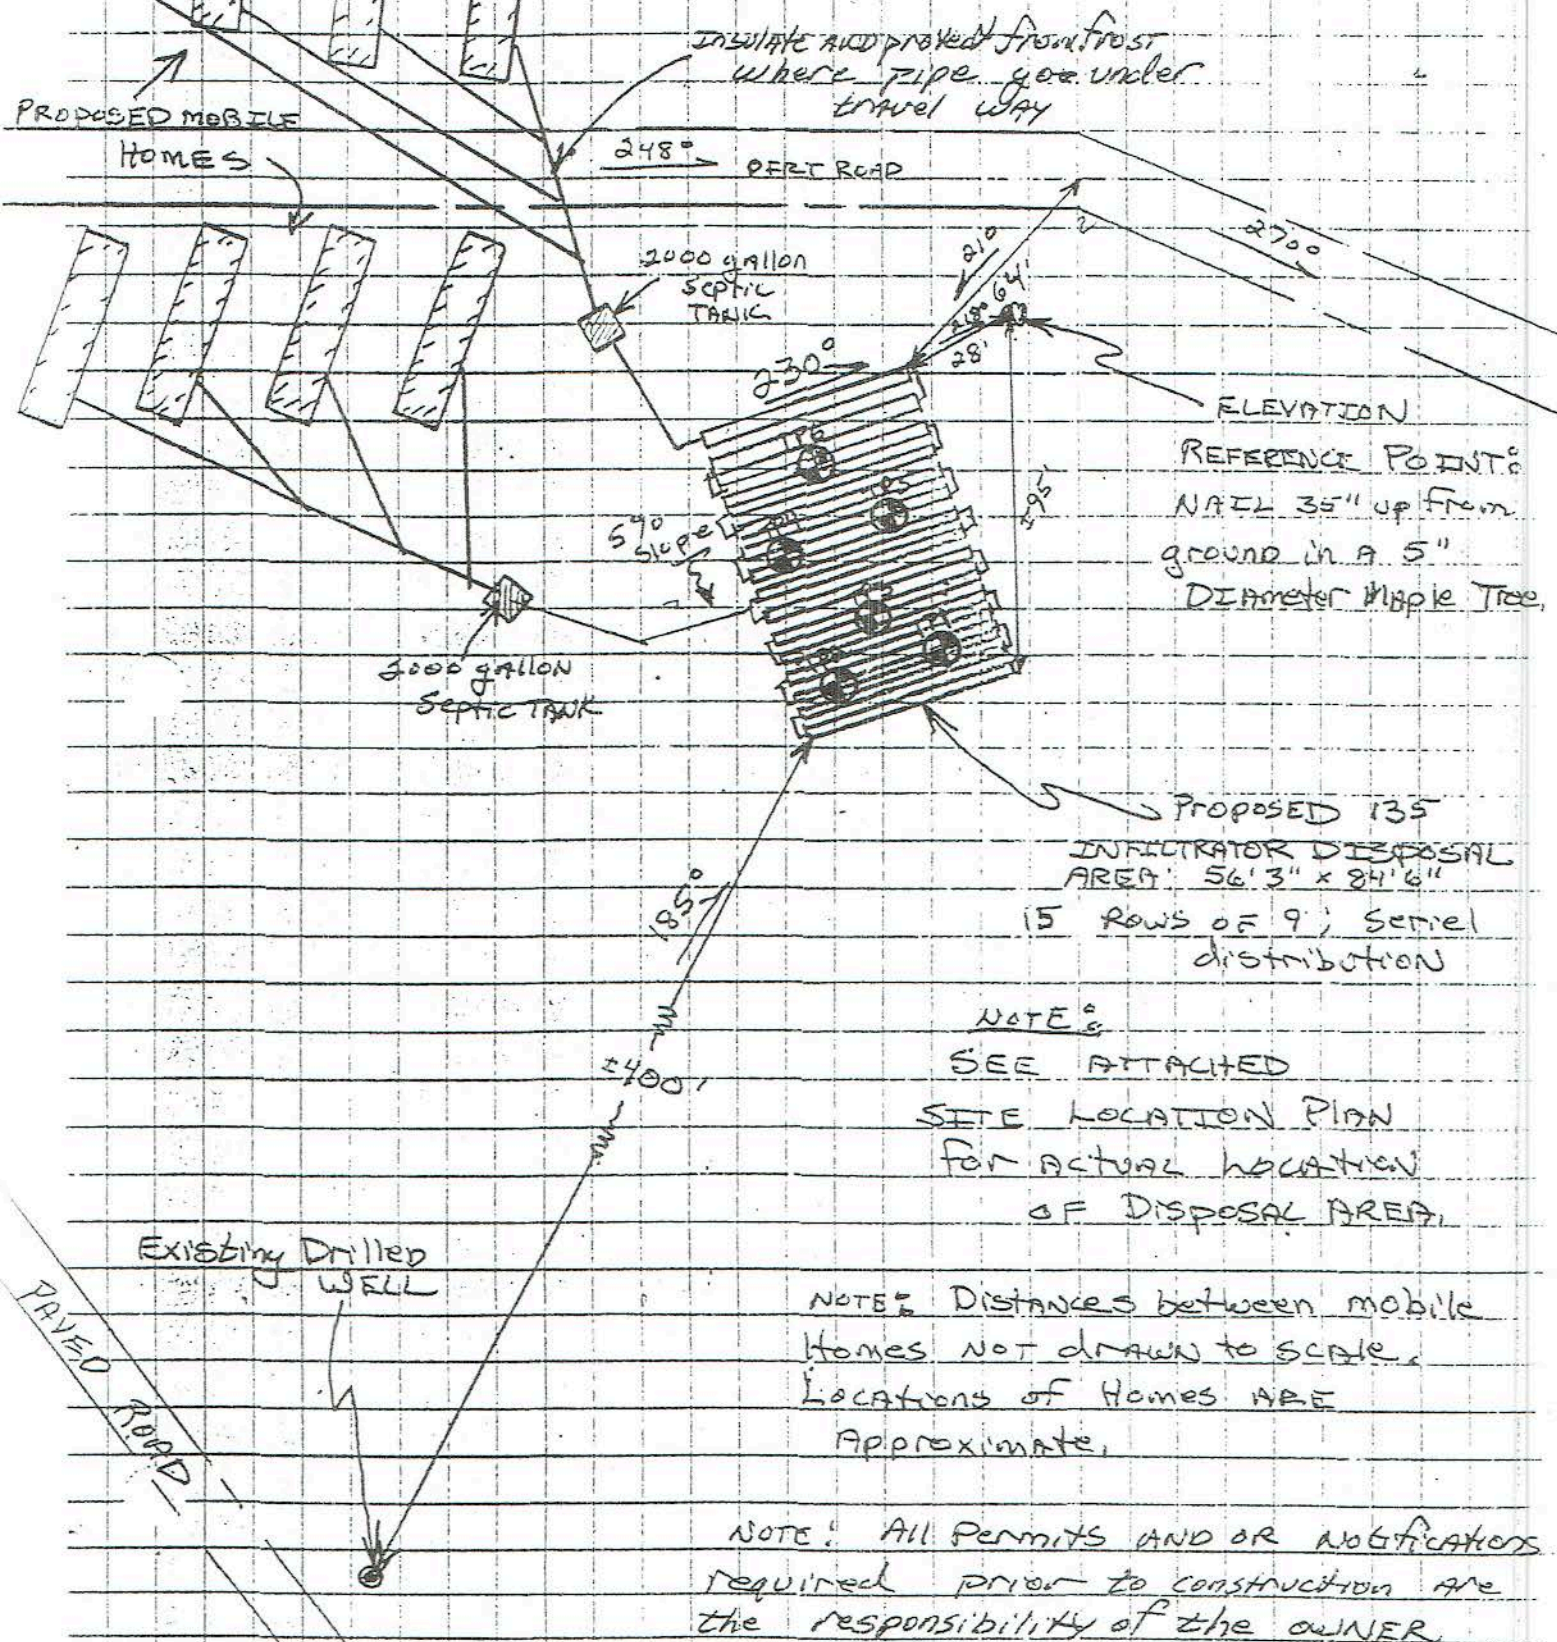 INSULATE AND protect from frost
where pipe goe under
travel WAY
PROPOSED MOBILE
HOMES
248°
DERT ROAD
270°
2000 gallon
septic
TANK
210
64'
218°
28'
230°
ELEVATION
REFERENCE POINT:
NAIL 35" up from
ground in A 5"
DIAmeter Maple Tree.
±95'
TP6
5%
slope
2000 gallon
Septic TANK
Proposed 135
INFILTRATOR DISPOSAL
AREA: 56'3" x 84'6"
15 Rows OF 9; Seriel
distribution
185°
±400'
NOTE:
SEE ATTACHED
SITE LOCATION PlAN
for ACTUAL LOCATION
OF DISPOSAL AREA.
Existing Drilled
WELL
PAVED ROAD
NOTE: Distances between mobile
Homes NOT drAWN to scAle.
Locations of Homes ARE
Approximate.
NOTE: All Permits AND OR Notifications
required prior to construction Are
the responsibility of the OWNER.